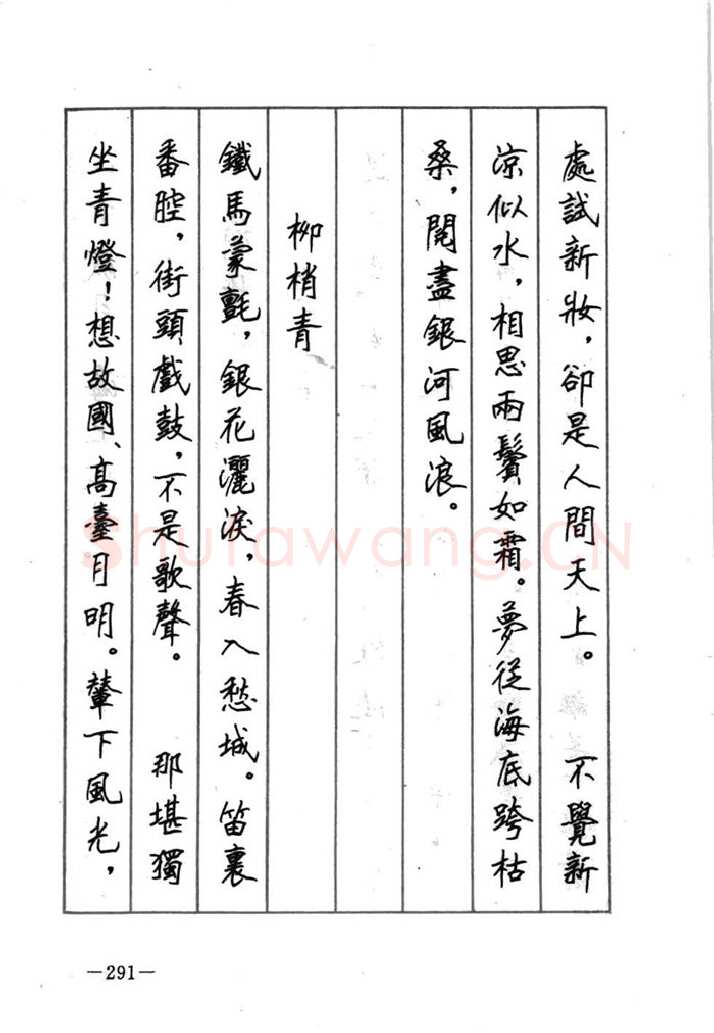 處試新妝，卻是人間天上。　不覺新
涼似水，相思兩鬢如霜。夢從海底跨枯
桑，閱盡銀河風浪。
柳梢青
鐵馬蒙氈，銀花灑淚，春入愁城。笛裏
番腔，街頭戲鼓，不是歌聲。　那堪獨
坐青燈！想故國、高臺月明。輦下風光，
—291—
Shufawang.CN